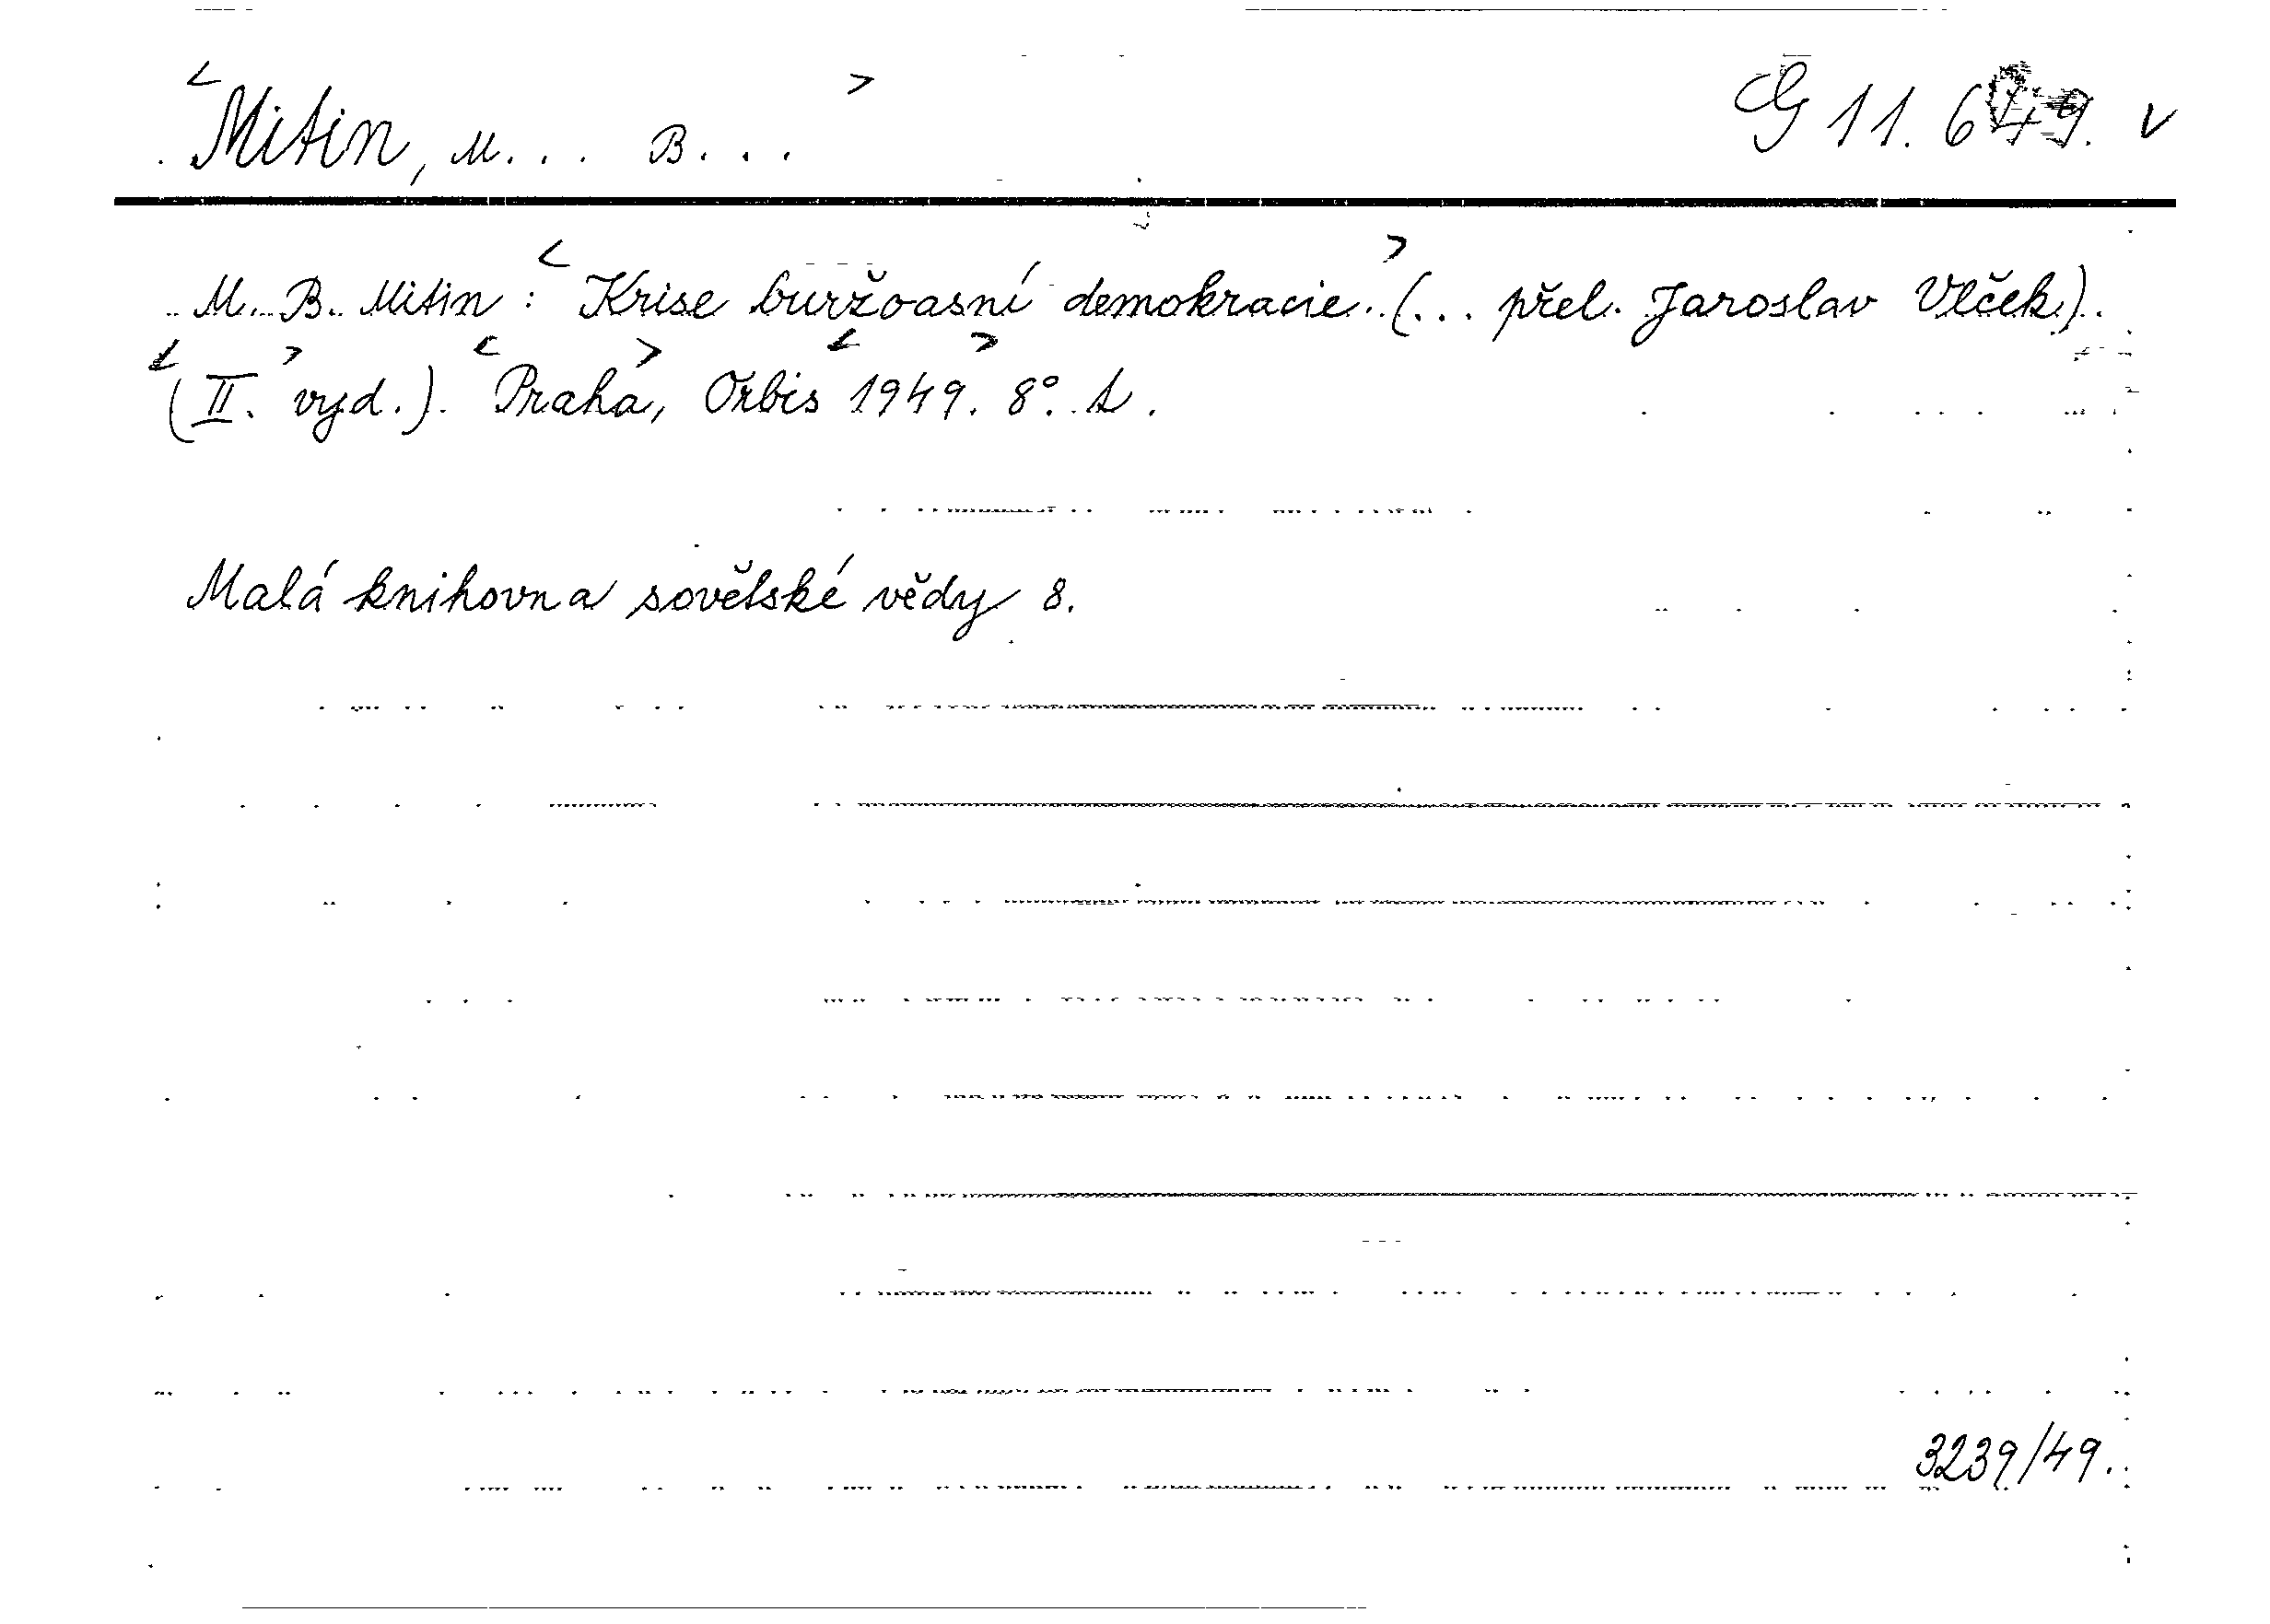 <Mitin, M... B...> G 11.649. v
M. B. Mitin: <Krise buržoasní demokracie.> (... přel. Jaroslav Vlček).
<(II. vyd.)>. <Praha>, Orbis <1949>. 8°. A.
Malá knihovna sovětské vědy 8.
3239/49.